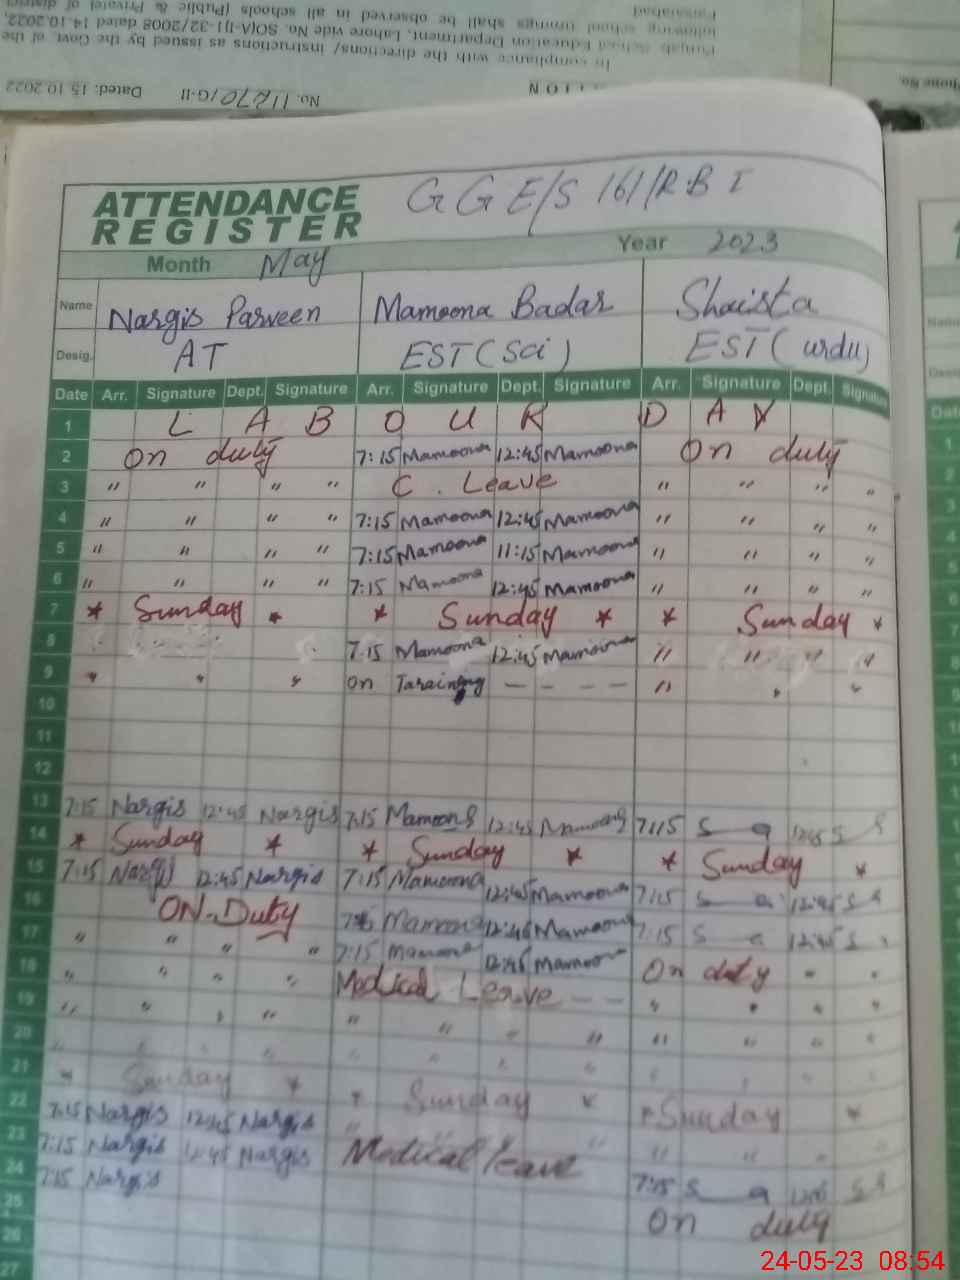 No. 11270/G-II Dated: 15.10.2022
In compliance with the directions/ instructions as issued by the Govt. of the
Punjab School Education Department, Lahore vide No. SO(A-II)1-32/2008 dated 14.10.2022,
following school timings shall be observed in all schools (Public & Private) of district
Faisalabad
ATTENDANCE REGISTER
GGE/S 161/R.B I
Month May Year 2023
Name Nargis Parveen Mamoona Badar Shaista
Desig. AT EST (Sci) EST (urdu)
Date Arr. Signature Dept. Signature Arr. Signature Dept. Signature Arr. Signature Dept. Signature
1 LABOUR DAY
2 On duty 7:15 Mamoona 12:45 Mamoona On duty
3 " " " " C. Leave " " " "
4 " " " " 7:15 Mamoona 12:45 Mamoona " " " "
5 " " " " 7:15 Mamoona 11:15 Mamoona " " " "
6 " " " " 7:15 Mamoona 12:45 Mamoona " " " "
7 * Sunday * * Sunday * * Sunday *
8 7:15 Mamoona 12:45 Mamoona " " " "
9 " " " On Taraining — — — — " " "
10
11
12
13 7:15 Nargis 12:45 Nargis 7:15 Mamoona 12:45 Mamoona 7:15 S a 12:45 S a
14 * Sunday * * Sunday * * Sunday *
15 7:15 Nargis 12:45 Nargis 7:15 Mamoona 12:45 Mamoona 7:15 S a 12:45 S a
16 ON-Duty 7:15 Mamoona 12:45 Mamoona 7:15 S a 12:45 S
17 " " " " 7:15 Mamoona 12:45 Mamoona On duty " "
18 " " " " Medical Leave — — " " " "
19 " " " " " " " " " " " "
20 " " " " " " " " " " " "
21 * Sunday * * Sunday * * Sunday *
22 7:15 Nargis 12:45 Nargis " " " " " " "
23 7:15 Nargis 12:45 Nargis Medical leave 7:15 S a S a
24 7:15 Nargis On duty
25
26
27
24-05-23 08:54